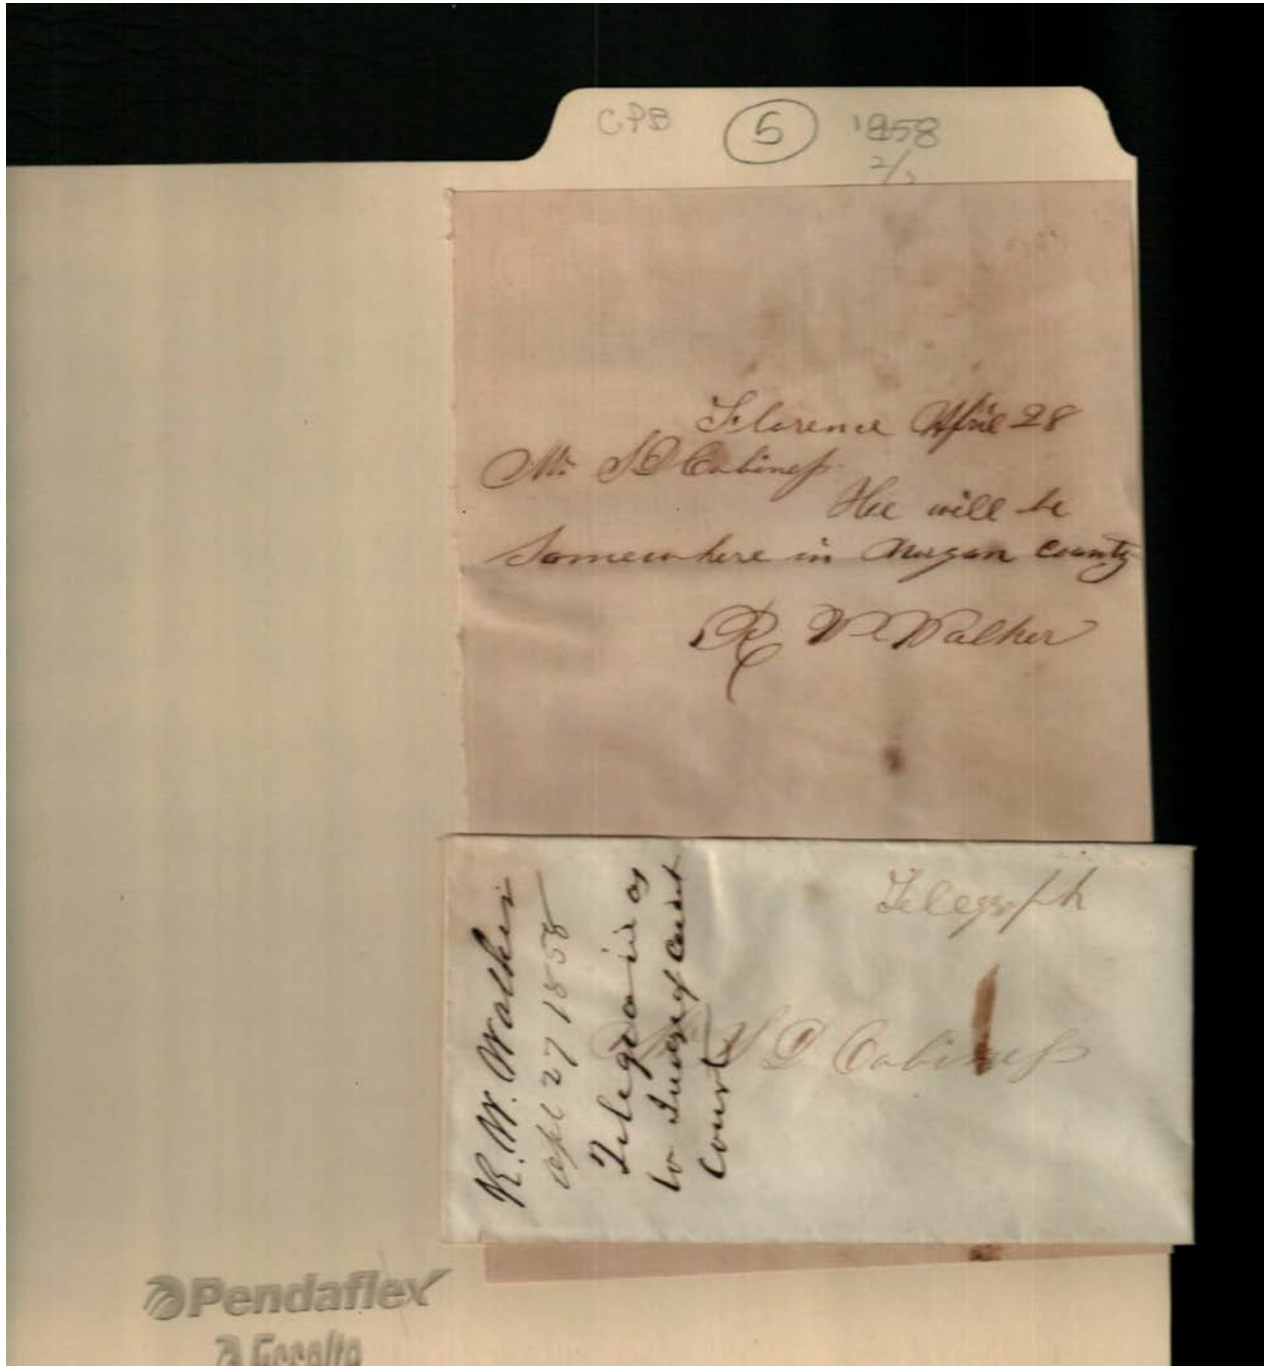 CPB 5 1858
2/
Florence April 28
Mr S D Cabiness
Hee will be
Somewhere in Morgan County
R W Walker
Telegraph
Mr S D Cabiness
R. W. Walker
Apl 27 1858
Telegram as
to Judge of
Court
Pendaflex
Esselte